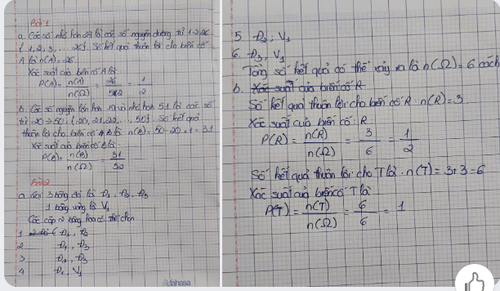 Bài 1
a. Các số nhỏ hơn 27 là các số nguyên dương từ 1->26
{1, 2, 3, ... 26}. Số kết quả thuận lợi cho biến cố
A là n(A) = 26
Xác suất của biến cố A là
P(A) = n(A)/n(Ω) = 26/52 = 1/2
b. Các số nguyên lớn hơn 19 và nhỏ hơn 51 là các số
từ 20 -> 50: {20, 21, 22, ..., 50}. Số kết quả
thuận lợi cho biến cố B là: n(B) = 50 - 20 + 1 = 31
Xác suất của biến cố B là:
P(B) = n(B)/n(Ω) = 31/52
Bài 2
a. Gọi 3 bông đỏ là Đ1, Đ2, Đ3
1 bông vàng là V1
Các cặp 2 bông hoa có thể chọn
1 Đ1, Đ2
2 Đ1, Đ3
3 Đ2, Đ3
4 Đ1, V1
5. Đ2, V1
6. Đ3, V1
Tổng số kết quả có thể xảy ra là n(Ω) = 6 cách
b. Xác suất của biến cố R
Số kết quả thuận lợi cho biến cố R: n(R) = 3
Xác suất của biến cố: R
P(R) = n(R)/n(Ω) = 3/6 = 1/2
Số kết quả thuận lợi cho T là: n(T) = 3+3 = 6
Xác suất của biến cố T là
P(T) = n(T)/n(Ω) = 6/6 = 1